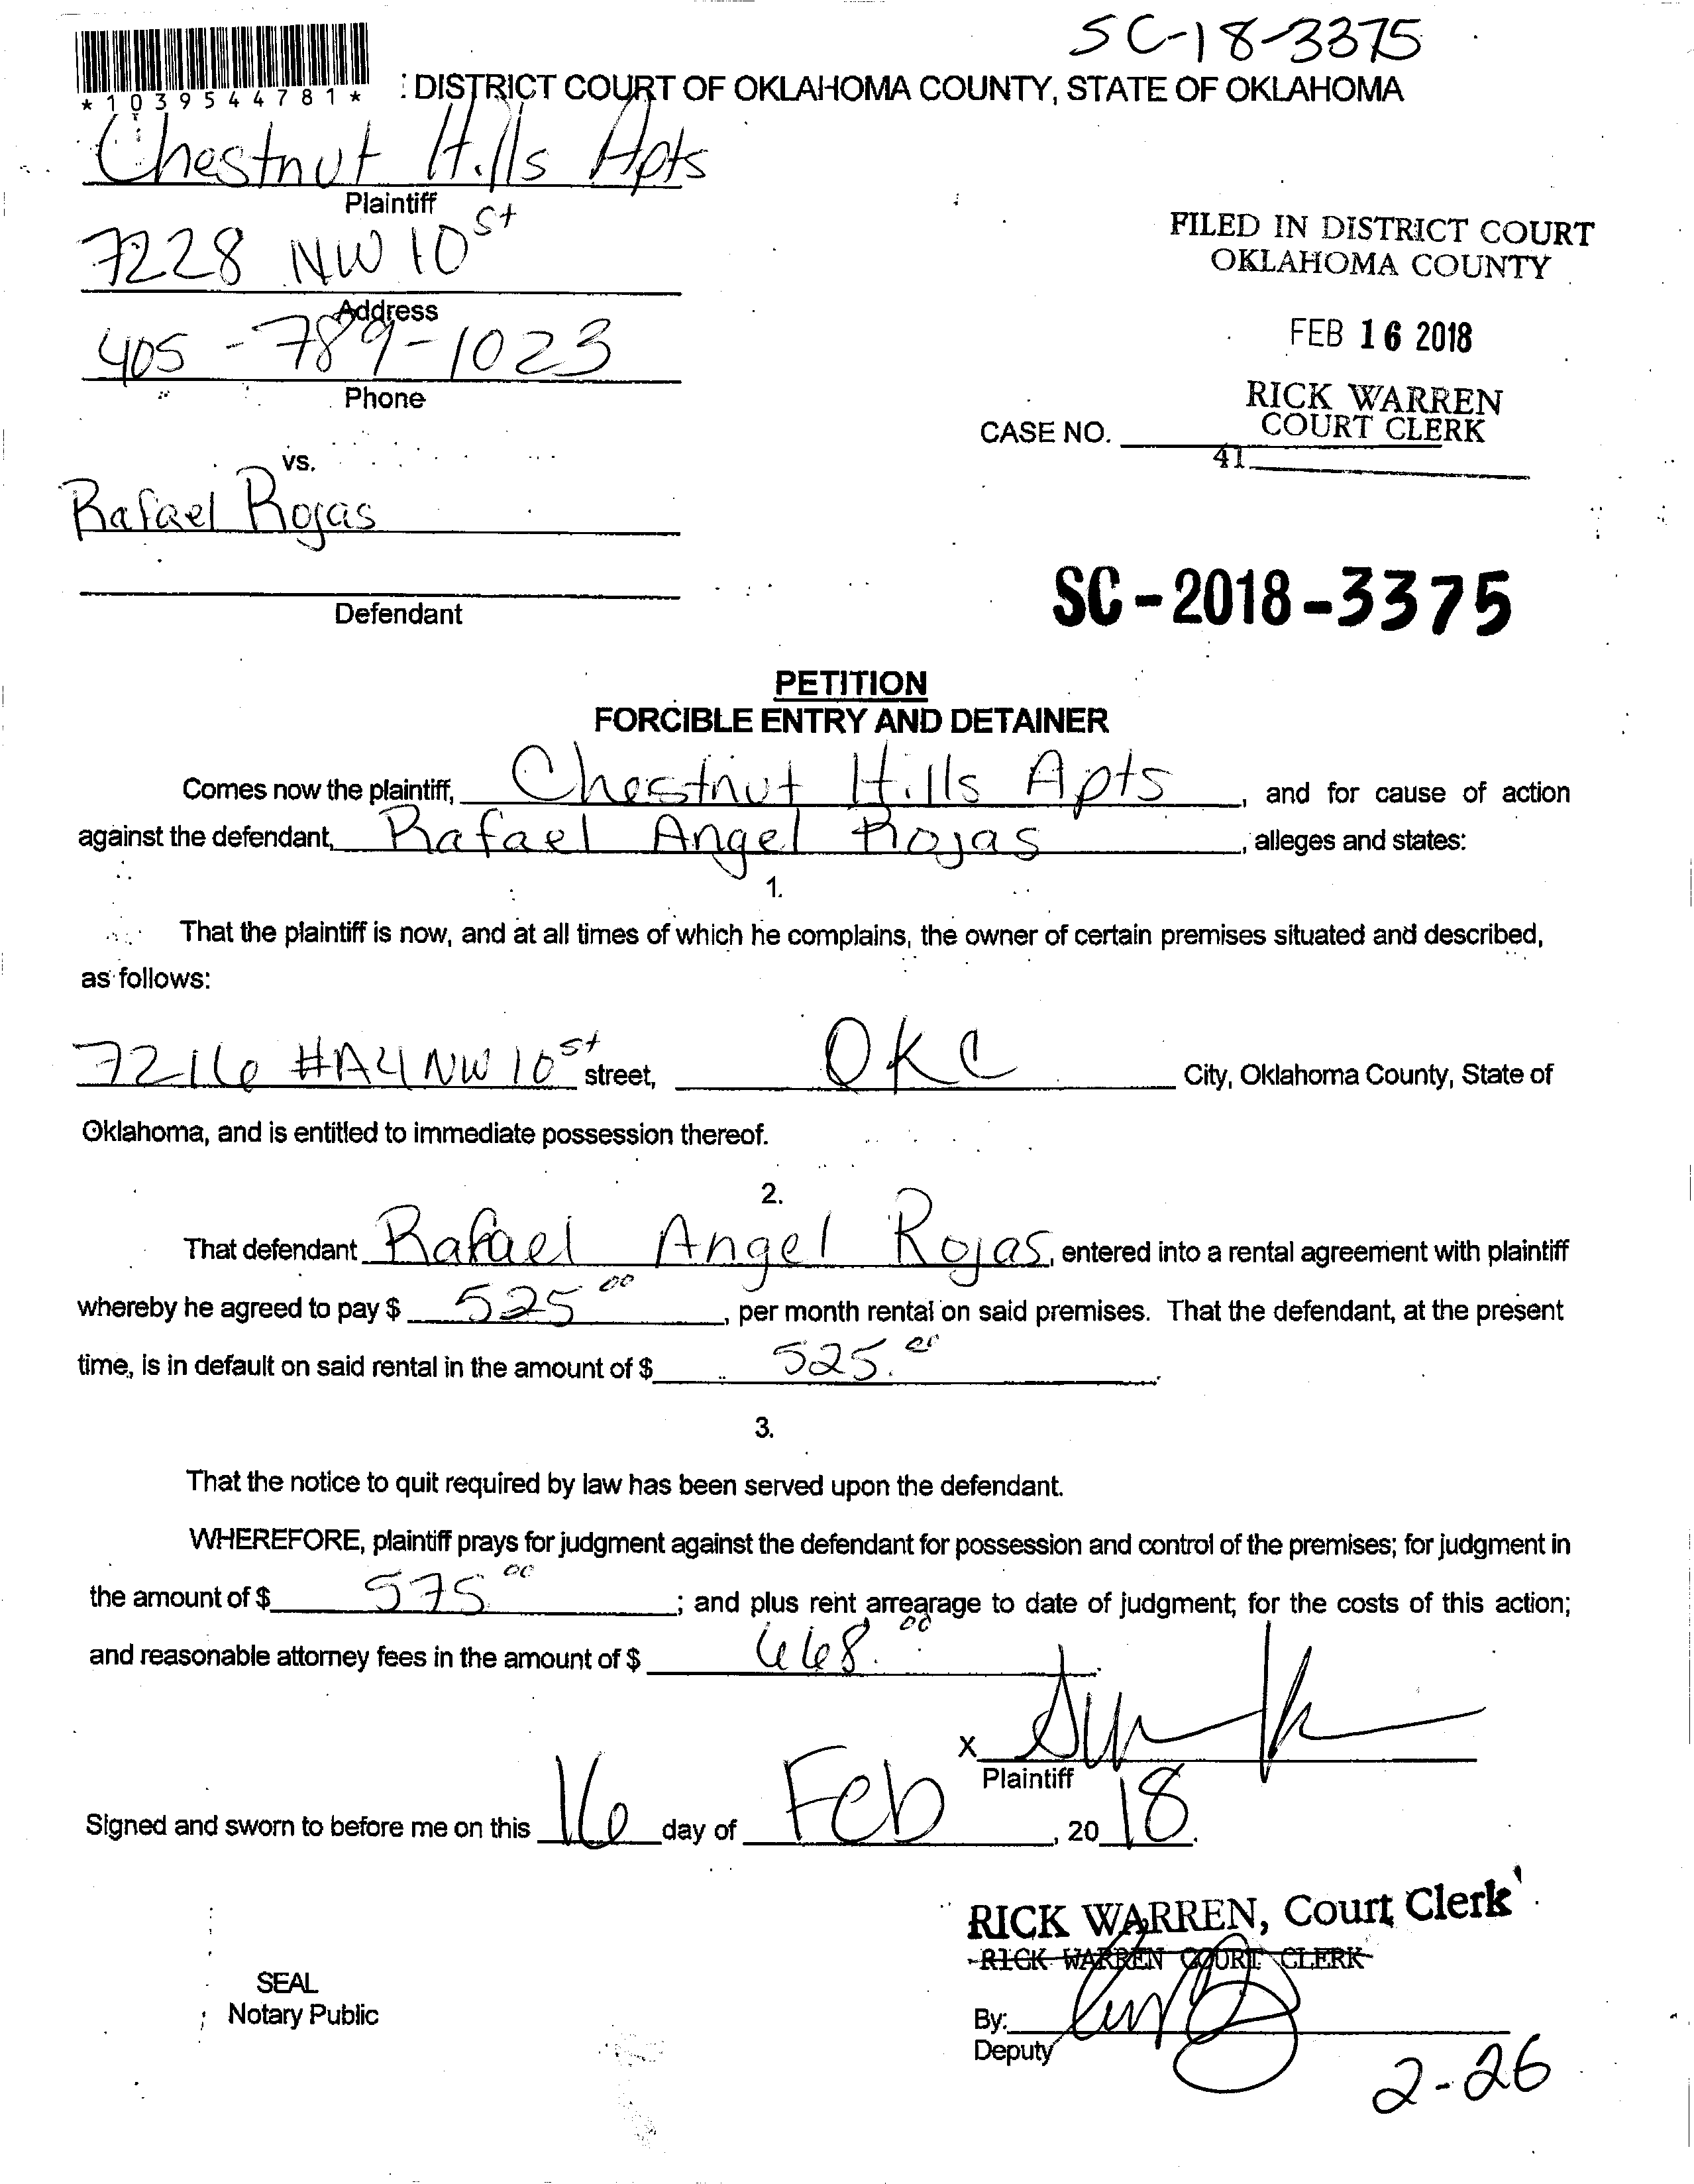 SC-18-3375
*1039544781*
: DISTRICT COURT OF OKLAHOMA COUNTY, STATE OF OKLAHOMA
Chestnut Hills Apts
Plaintiff
7228 NW 10 St
Address
405-789-1023
Phone
FILED IN DISTRICT COURT
OKLAHOMA COUNTY
FEB 16 2018
RICK WARREN
COURT CLERK
CASE NO.
41
vs.
Rafael Rojas
Defendant
SC-2018-3375
PETITION
FORCIBLE ENTRY AND DETAINER
Comes now the plaintiff, Chestnut Hills Apts, and for cause of action
against the defendant, Rafael Angel Rojas, alleges and states:
1.
That the plaintiff is now, and at all times of which he complains, the owner of certain premises situated and described,
as follows:
7216 #A4 NW 10 St street, OKC City, Oklahoma County, State of
Oklahoma, and is entitled to immediate possession thereof.
2.
That defendant Rafael Angel Rojas, entered into a rental agreement with plaintiff
whereby he agreed to pay $ 525 00, per month rental on said premises. That the defendant, at the present
time, is in default on said rental in the amount of $ 525.00.
3.
That the notice to quit required by law has been served upon the defendant.
WHEREFORE, plaintiff prays for judgment against the defendant for possession and control of the premises; for judgment in
the amount of $ 575 00; and plus rent arrearage to date of judgment; for the costs of this action;
and reasonable attorney fees in the amount of $ 668.00.
X
Plaintiff
Signed and sworn to before me on this 16 day of Feb, 2018.
RICK WARREN, Court Clerk
RICK WARREN COURT CLERK
SEAL
Notary Public
By:
Deputy
2-26